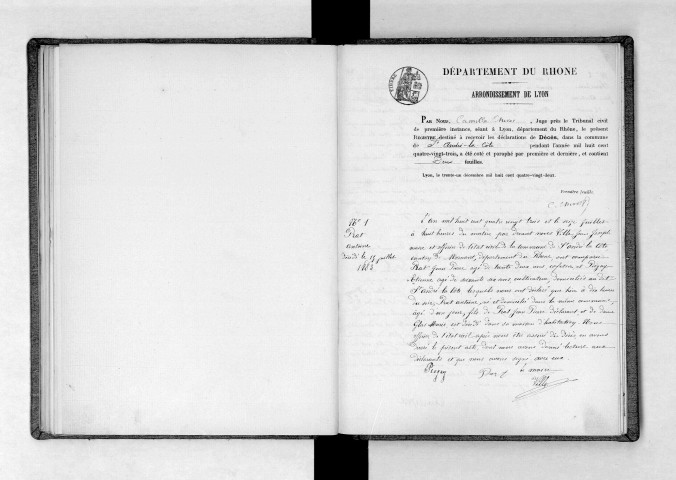 DÉPARTEMENT DU RHONE
ARRONDISSEMENT DE LYON
PAR NOUS, Camille , Juge près le Tribunal civil
de première instance, séant à Lyon, département du Rhône, le présent
REGISTRE destiné à recevoir les déclarations de Décès, dans la commune
de St André-la-Côte pendant l'année mil huit cent
quatre-vingt-trois, a été coté et paraphé par première et dernière, et contient
Deux feuilles.
Lyon, le trente-un décembre mil huit cent quatre-vingt-deux.
Première feuille
N° 1
Prat
Antoine
décédé le 15 juillet
1883
L'an mil huit cent quatre vingt trois et le seize juillet
à huit heures du matin par devant nous Villy Jean Joseph
maire et officier de l'état civil de la commune de St André la Côte
canton de Mornant, département du Rhône, ont comparu
Prat Jean Pierre âgé de trente deux ans, et Pizay
Etienne âgé de ans, cultivateurs, domiciliés au dit
St André la Côte lesquels nous ont déclaré que hier à dix heures
du soir, Prat Antoine, né et domicilié dans la même commune,
âgé d'un jour, fils de Prat Jean Pierre déclarant et de dame
Marie est décédé dans sa maison d'habitation. Nous
officier de l'état civil, après nous être assuré du décès, en avons
dressé le présent acte, dont nous avons donné lecture aux
déclarants et que nous avons signé avec eux.
Pizay Prat le maire
Villy